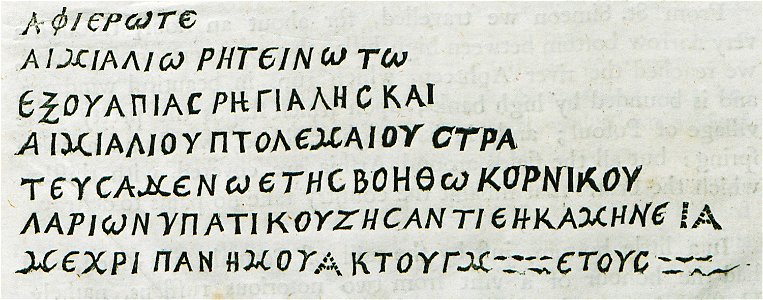 ΑΦΙΕΡΩΤΕ
ΑΙΜΙΑΛΙΩ ΡΗΤΕΙΝΩ ΤΩ
ΕΞΟΥΑΠΙΑϹ ΡΗΓΙΑΛΗϹ ΚΑΙ
ΑΙΜΙΑΛΙΟΥ ΠΤΟΛΕΜΑΙΟΥ ϹΤΡΑ
ΤΕΥϹΑΜΕΝΩΕΤΗϹΒΟΗΘΩ ΚΟΡΝΙΚΟΥ
ΛΑΡΙΩΝΥΠΑΤΙΚΟΥΖΗϹΑΝΤΙΕΗΚΑΜΗΝΕ ΙΑ
ΜΕΧΡΙ ΠΑΝΗΜΟΥΑ ΚΤΟΥΓΜ ΕΤΟΥϹ